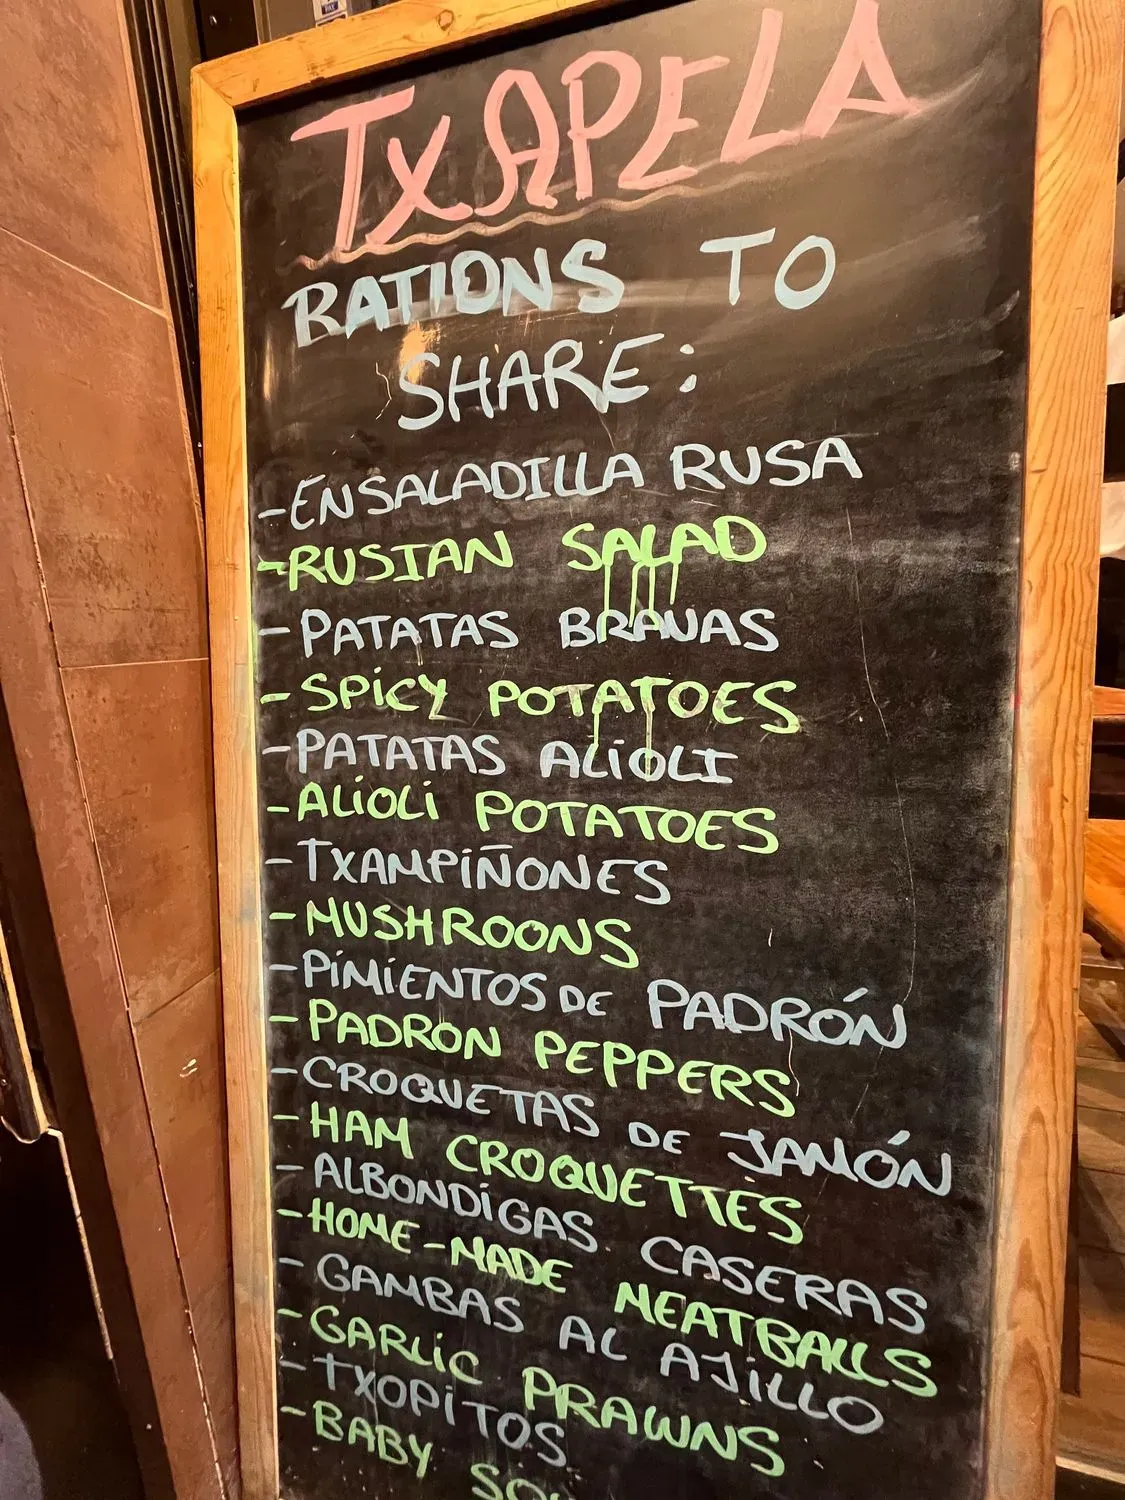 TXAPELA
RATIONS TO
SHARE:
-ENSALADILLA RUSA
-RUSIAN SALAD
-PATATAS BRAVAS
-SPICY POTATOES
-PATATAS ALIOLI
-ALIOLI POTATOES
-TXAMPIÑONES
-MUSHROONS
-PIMIENTOS DE PADRÓN
-PADRON PEPPERS
-CROQUETAS DE JAMÓN
-HAM CROQUETTES
-ALBONDIGAS CASERAS
-HOME-MADE MEATBALLS
-GAMBAS AL AJILLO
-GARLIC PRAWNS
-TXOPITOS
-BABY